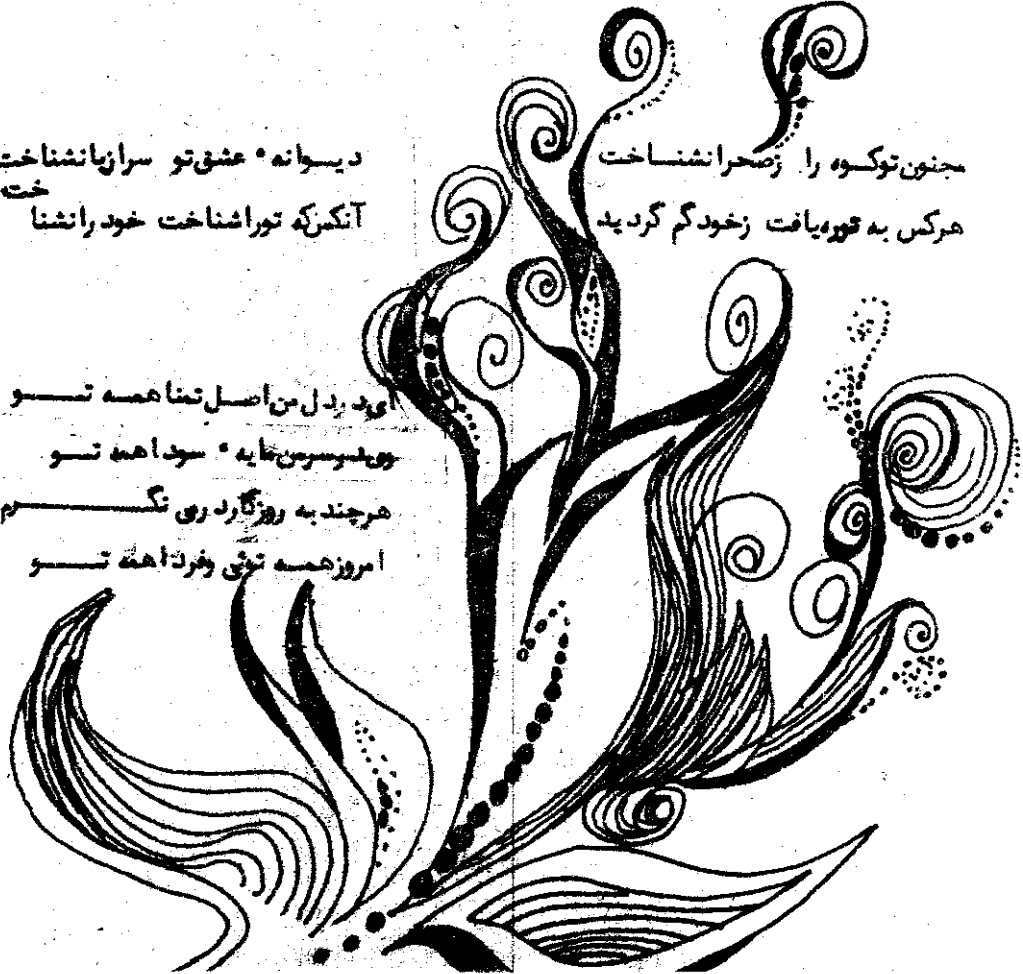 مجنون تو کوه را زصحرا نشناخت
دیوانه ٔ عشق تو سر از پا نشناخت
هرکس به تو ره یافت زخود گم گردید
آنکس که تو را شناخت خود را نشناخت
ای در دل من اصل تمنا همه تو
وی در سر من مایه ٔ سودا همه تو
هرچند به روزگار در می نگرم
امروز همه توئی و فردا همه تو